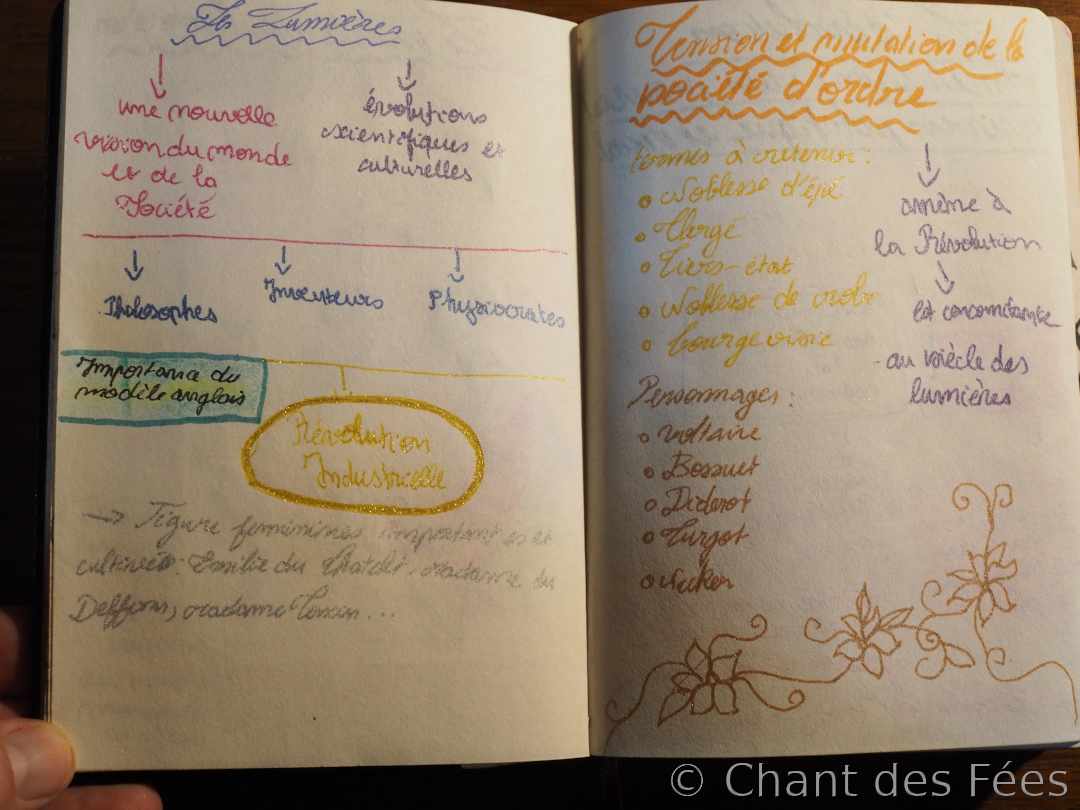 Les Lumières
une nouvelle
vision du monde
et de la
Société
évolutions
scientifiques et
culturelles
Philosophes
Inventeurs
Physiocrates
Importance du
modèle anglais
Révolution
Industrielle
→ Figure féminines importantes et
cultivées : Emilie du Chatelet, madame du
Deffans, madame Tencin...
Tension et mutation de la
société d'ordre
termes à retenir :
o Noblesse d'épé
o Clergé
o Tiers-état
o Noblesse de robe
o bourgeoisie
Personnages :
o Voltaire
o Bossuet
o Diderot
o Turgot
o Necker
amène à
la Révolution
est concomitante
au siècle des
lumières
© Chant des Fées